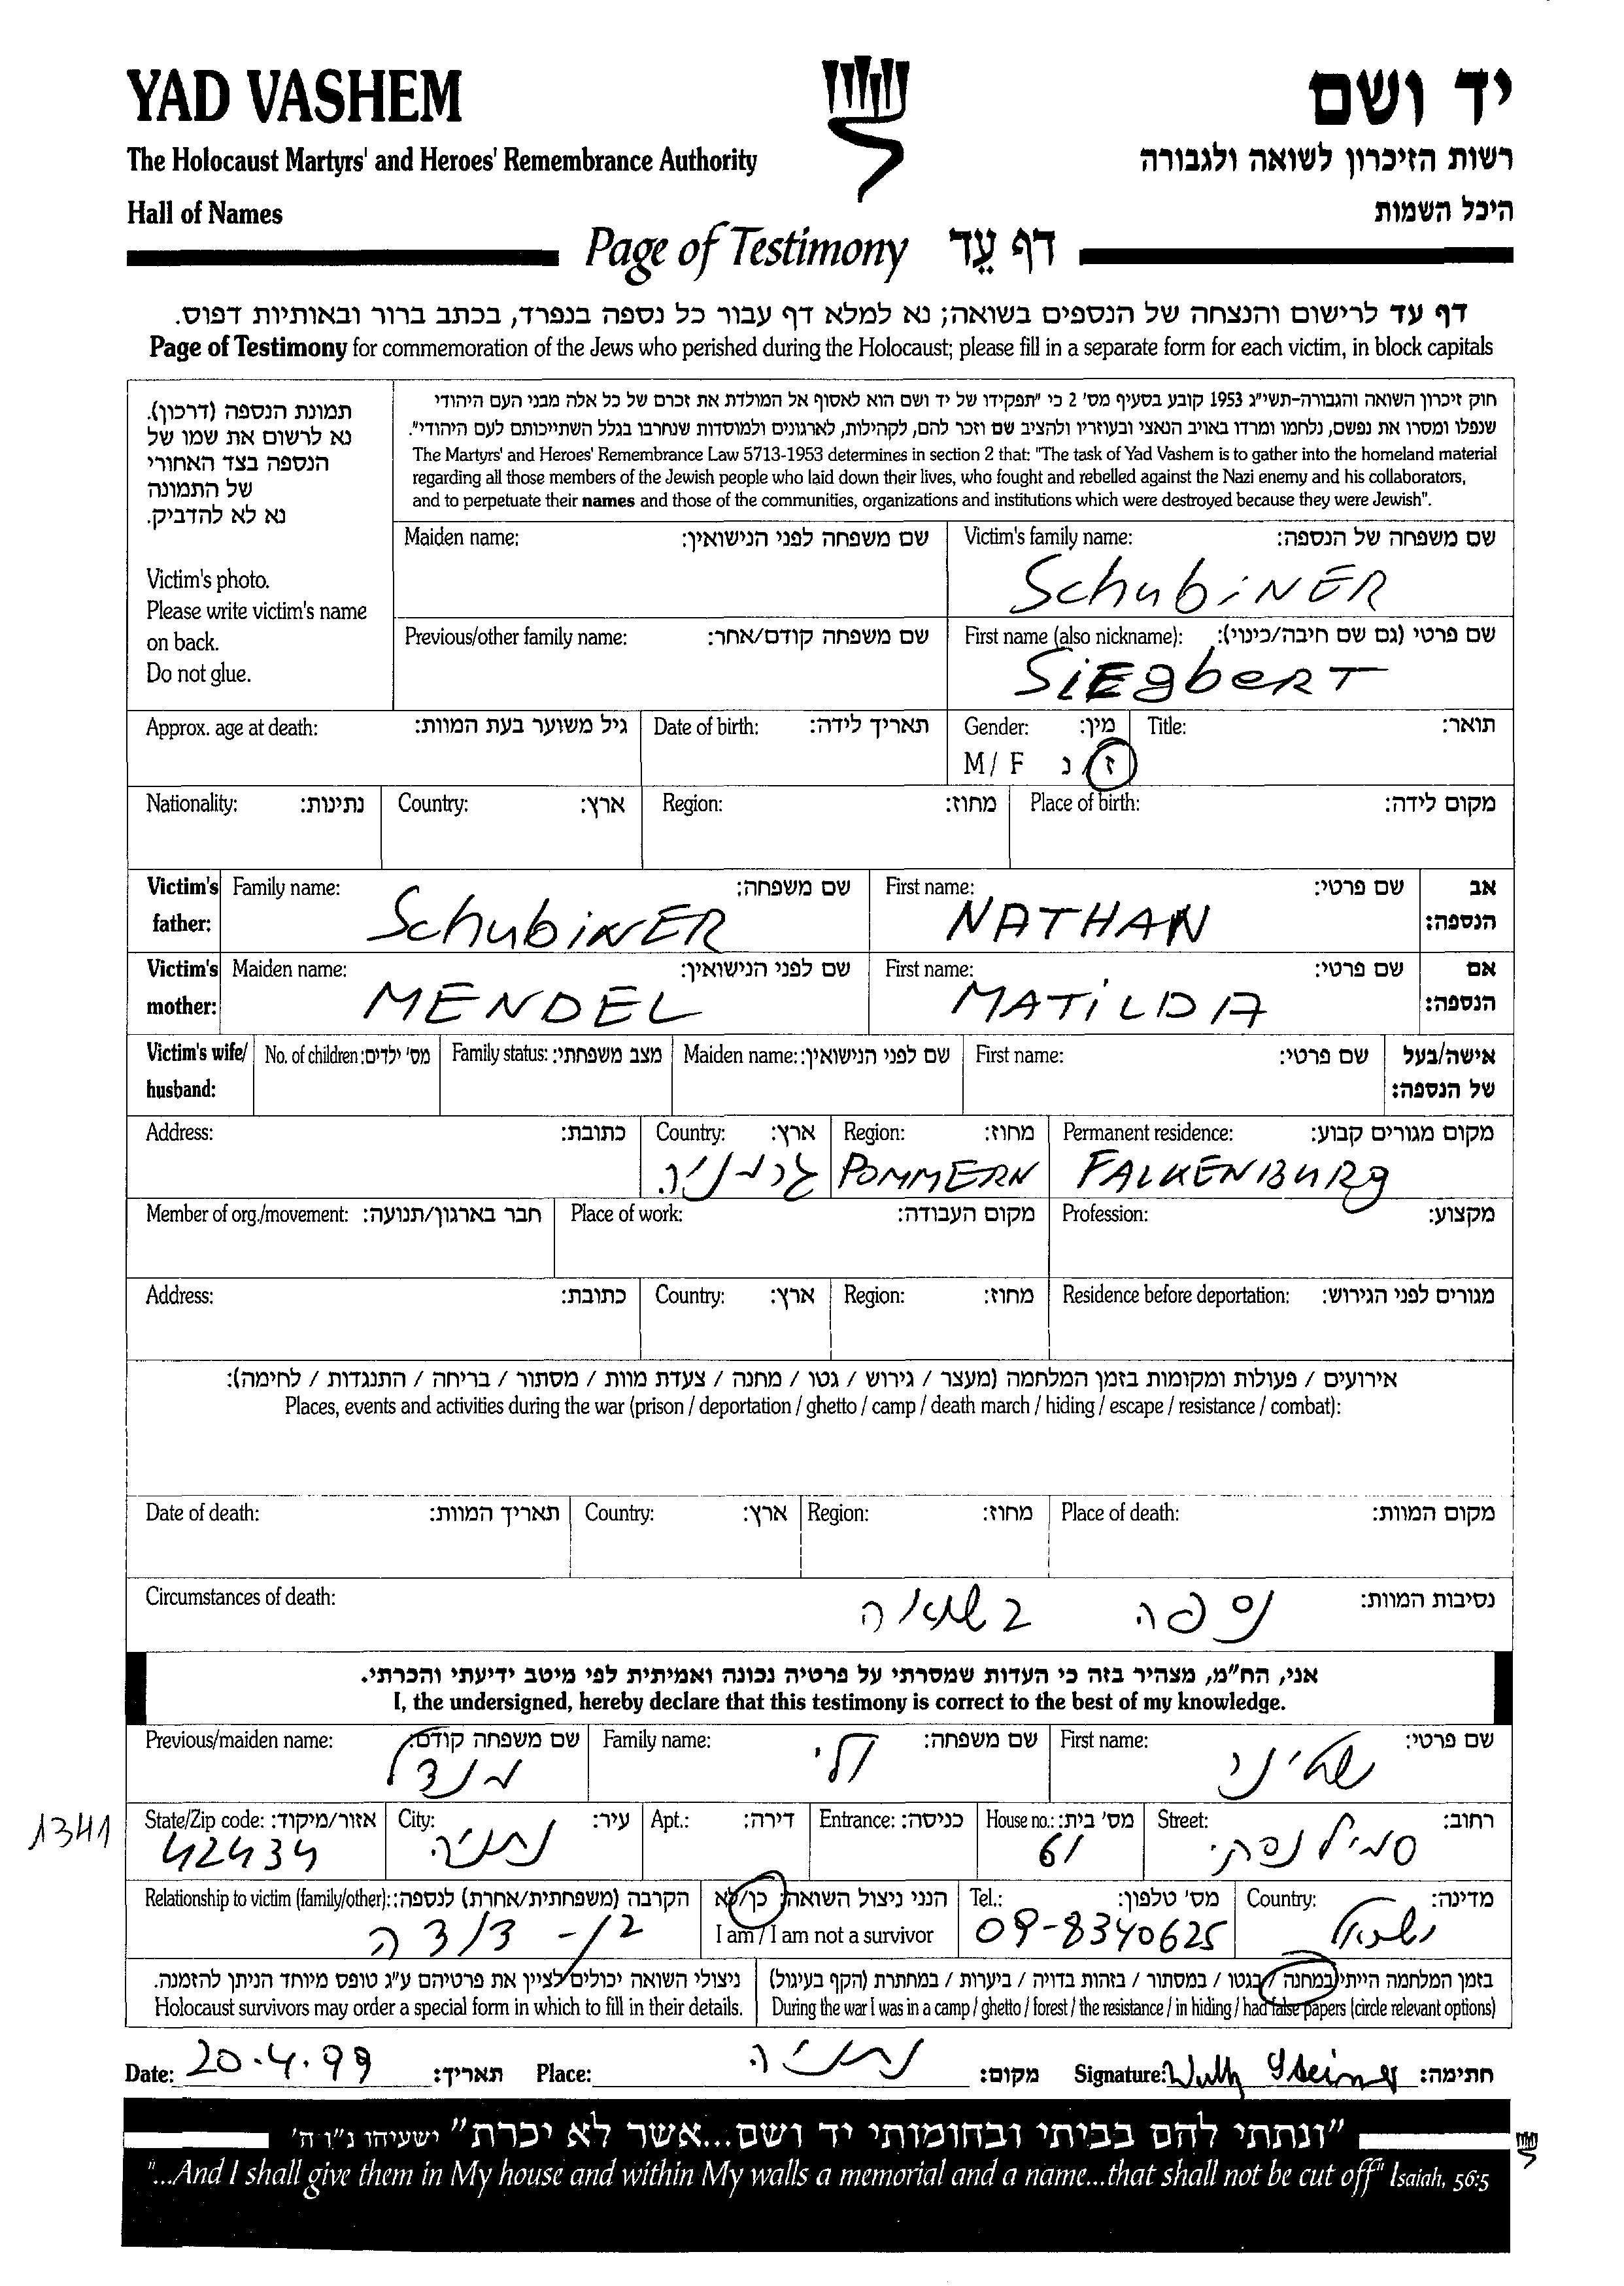 YAD VASHEM
יד ושם
The Holocaust Martyrs' and Heroes' Remembrance Authority
רשות הזיכרון לשואה ולגבורה
Hall of Names
היכל השמות
Page of Testimony דף עֵד
דף עד לרישום והנצחה של הנספים בשואה; נא למלא דף עבור כל נספה בנפרד, בכתב ברור ובאותיות דפוס.
Page of Testimony for commemoration of the Jews who perished during the Holocaust; please fill in a separate form for each victim, in block capitals
תמונת הנספה (דרכון).
נא לרשום את שמו של
הנספה בצד האחורי
של התמונה
נא לא להדביק.
Victim's photo.
Please write victim's name
on back.
Do not glue.
חוק זיכרון השואה והגבורה-תשי"ג 1953 קובע בסעיף מס' 2 כי "תפקידו של יד ושם הוא לאסוף אל המולדת את זכרם של כל אלה מבני העם היהודי
שנפלו ומסרו את נפשם, נלחמו ומרדו באויב הנאצי ובעוזריו ולהציב שם וזכר להם, לקהילות, לארגונים ולמוסדות שנחרבו בגלל השתייכותם לעם היהודי".
The Martyrs' and Heroes' Remembrance Law 5713-1953 determines in section 2 that: "The task of Yad Vashem is to gather into the homeland material
regarding all those members of the Jewish people who laid down their lives, who fought and rebelled against the Nazi enemy and his collaborators,
and to perpetuate their names and those of the communities, organizations and institutions which were destroyed because they were Jewish".
Maiden name: שם משפחה לפני הנישואין: Victim's family name: שם משפחה של הנספה:
SchubiNER
Previous/other family name: שם משפחה קודם/אחר: First name (also nickname): שם פרטי (גם שם חיבה/כינוי):
SiEgbeRT
Approx. age at death: גיל משוער בעת המוות: Date of birth: תאריך לידה: Gender: מין: Title: תואר:
M / F ז / נ
Nationality: נתינות: Country: ארץ: Region: מחוז: Place of birth: מקום לידה:
Victim's father: Family name: שם משפחה: First name: שם פרטי: אב הנספה:
SchubiNER NATHAN
Victim's mother: Maiden name: שם לפני הנישואין: First name: שם פרטי: אם הנספה:
MENDEL MATiLDA
Victim's wife/ husband: No. of children: מס' ילדים: Family status: מצב משפחתי: Maiden name: שם לפני הנישואין: First name: שם פרטי: אישה/בעל של הנספה:
Address: כתובת: Country: ארץ: Region: מחוז: Permanent residence: מקום מגורים קבוע:
גרמניה POMMERN FALKENBURg
Member of org./movement: חבר בארגון/תנועה: Place of work: מקום העבודה: Profession: מקצוע:
Address: כתובת: Country: ארץ: Region: מחוז: Residence before deportation: מגורים לפני הגירוש:
אירועים / פעולות ומקומות בזמן המלחמה (מעצר / גירוש / גטו / מחנה / צעדת מוות / מסתור / בריחה / התנגדות / לחימה):
Places, events and activities during the war (prison / deportation / ghetto / camp / death march / hiding / escape / resistance / combat):
Date of death: תאריך המוות: Country: ארץ: Region: מחוז: Place of death: מקום המוות:
Circumstances of death: נסיבות המוות:
נספה בשואה
אני, הח"מ, מצהיר בזה כי העדות שמסרתי על פרטיה נכונה ואמיתית לפי מיטב ידיעתי והכרתי.
I, the undersigned, hereby declare that this testimony is correct to the best of my knowledge.
Previous/maiden name: שם משפחה קודם: Family name: שם משפחה: First name: שם פרטי:
מנדל
State/Zip code: אזור/מיקוד: City: עיר: Apt.: דירה: Entrance: כניסה: House no.: מס' בית: Street: רחוב:
1341
42434 נתניה 61
Relationship to victim (family/other): הקרבה (משפחתית/אחרת) לנספה: הנני ניצול השואה: כן/לא Tel.: מס' טלפון: Country: מדינה:
I am / I am not a survivor
בן-דודה 09-8340625 ישראל
ניצולי השואה יכולים לציין את פרטיהם ע"ג טופס מיוחד הניתן להזמנה.
Holocaust survivors may order a special form in which to fill in their details.
בזמן המלחמה הייתי במחנה / בגטו / במסתור / בזהות בדויה / ביערות / במחתרת (הקף בעיגול)
During the war I was in a camp / ghetto / forest / the resistance / in hiding / had false papers (circle relevant options)
Date: 20.4.99 תאריך: Place: נתניה מקום: Signature: חתימה:
"ונתתי להם בביתי ובחומותי יד ושם...אשר לא יכרת" ישעיהו נ"ו ה'
"...And I shall give them in My house and within My walls a memorial and a name...that shall not be cut off" Isaiah, 56:5